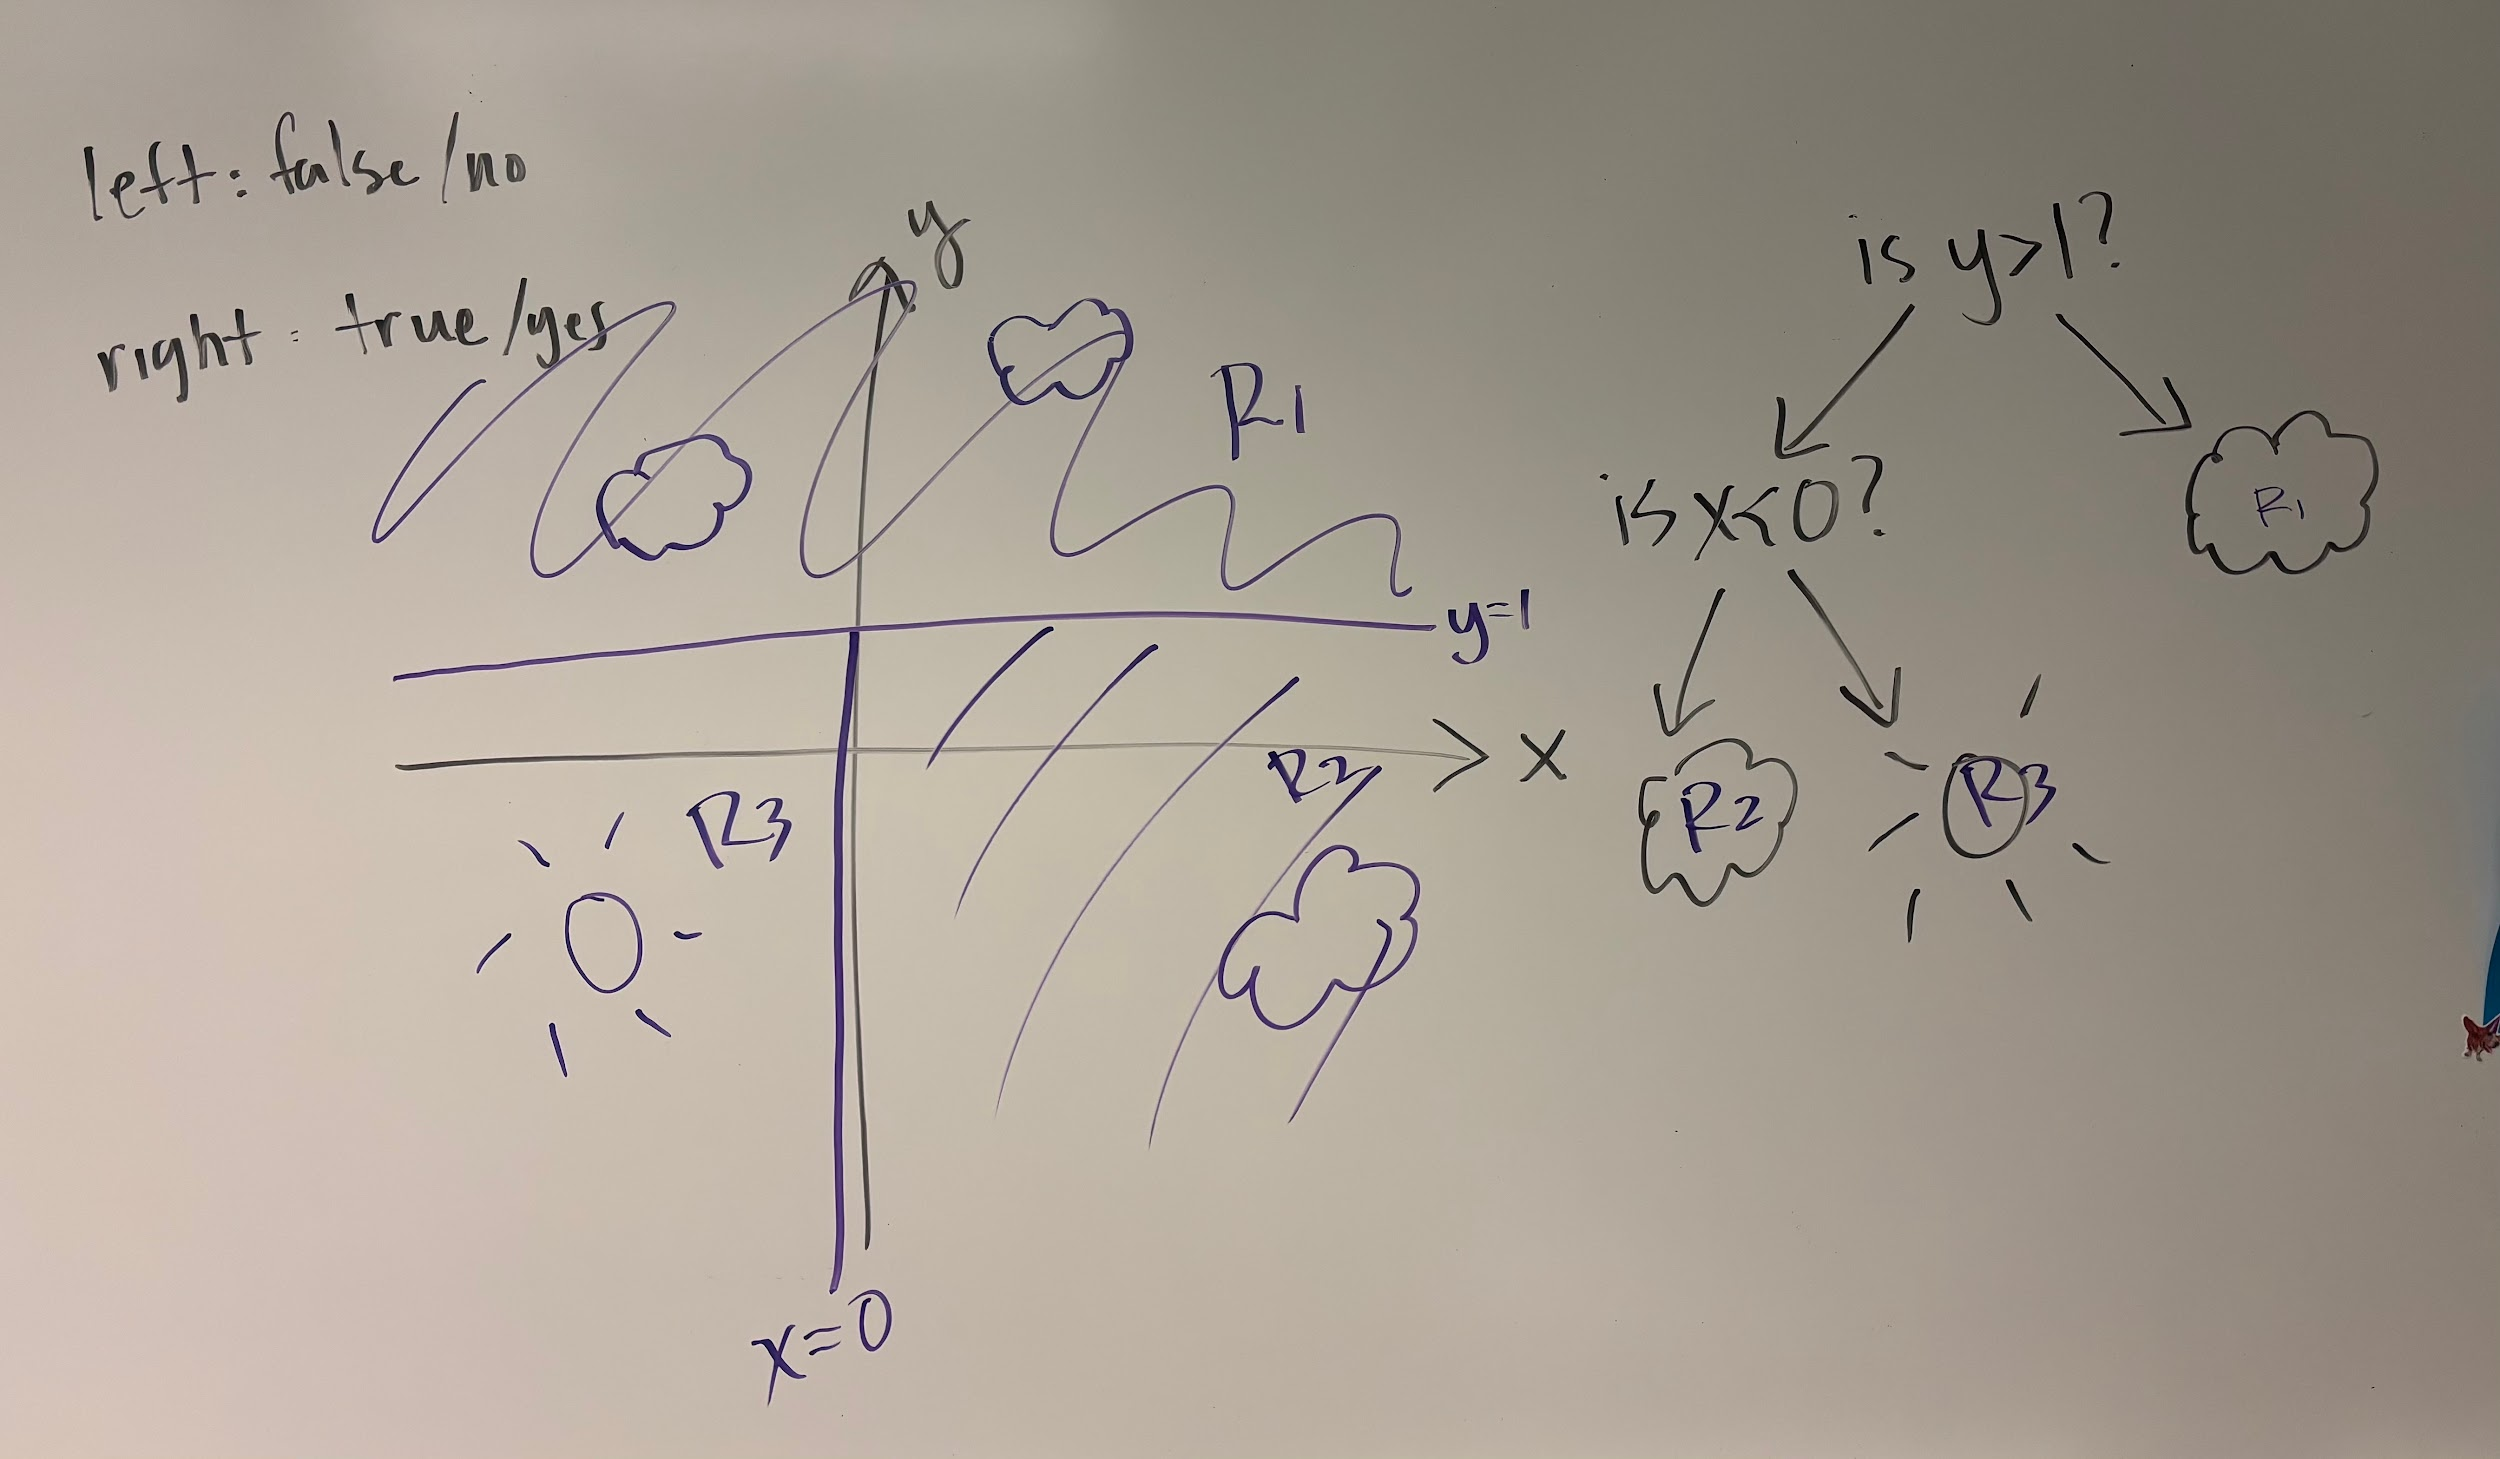 left: false/no
right: true/yes
y
R1
y=1
x
R2
R3
x=0
is y>1?
is x<0?
R1
R2
R3